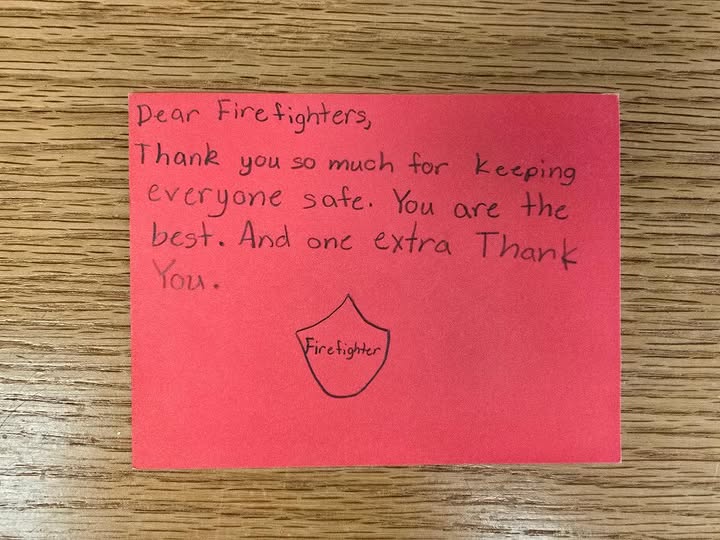 Dear Firefighters,
Thank you so much for keeping
everyone safe. You are the
best. And one extra Thank
You.
Firefighter